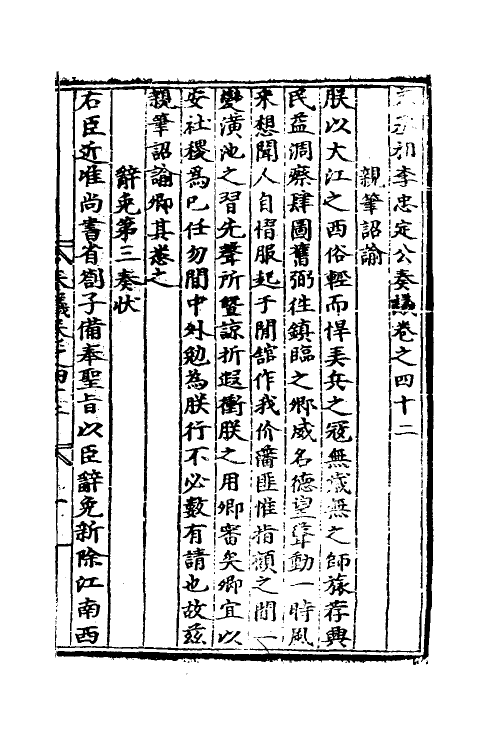 李忠定公奏議卷之四十二
親筆詔諭
朕以大江之西俗輕而悍弄兵之寇無歲無之師旅荐興
民益凋瘵肆圖舊弼往鎮臨之卿威名德望聳動一時風
采想聞人自慴服起于閒舘作我价藩匪惟指顧之間一
變潢池之習先聲所曁諒折遐衝朕之用卿審矣卿宜以
安社稷爲己任勿間中外勉為朕行不必數有請也故茲
親筆詔諭卿其悉之
辭免第三奏狀
右臣近准尚書省劄子備奉聖旨以臣辭免新除江南西